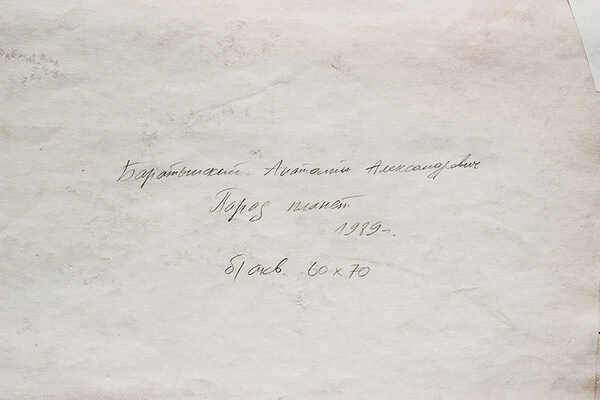 Баратынский Анатолий Александрович
Парад планет
1989г.
б/акв. 60х70